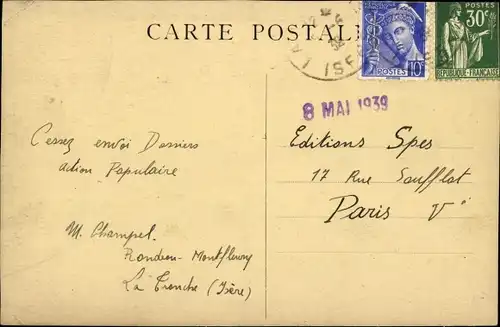 CARTE POSTALE
POSTES 10c
POSTES
30c
REPUBLIQUE-FRANÇAISE
8 MAI 1939
Cessez envoi Dossiers
action Populaire
M. Champel.
Rondeau-Montfleury
La Tronche (Isère)
Editions Spes
17 Rue Soufflot
Paris V